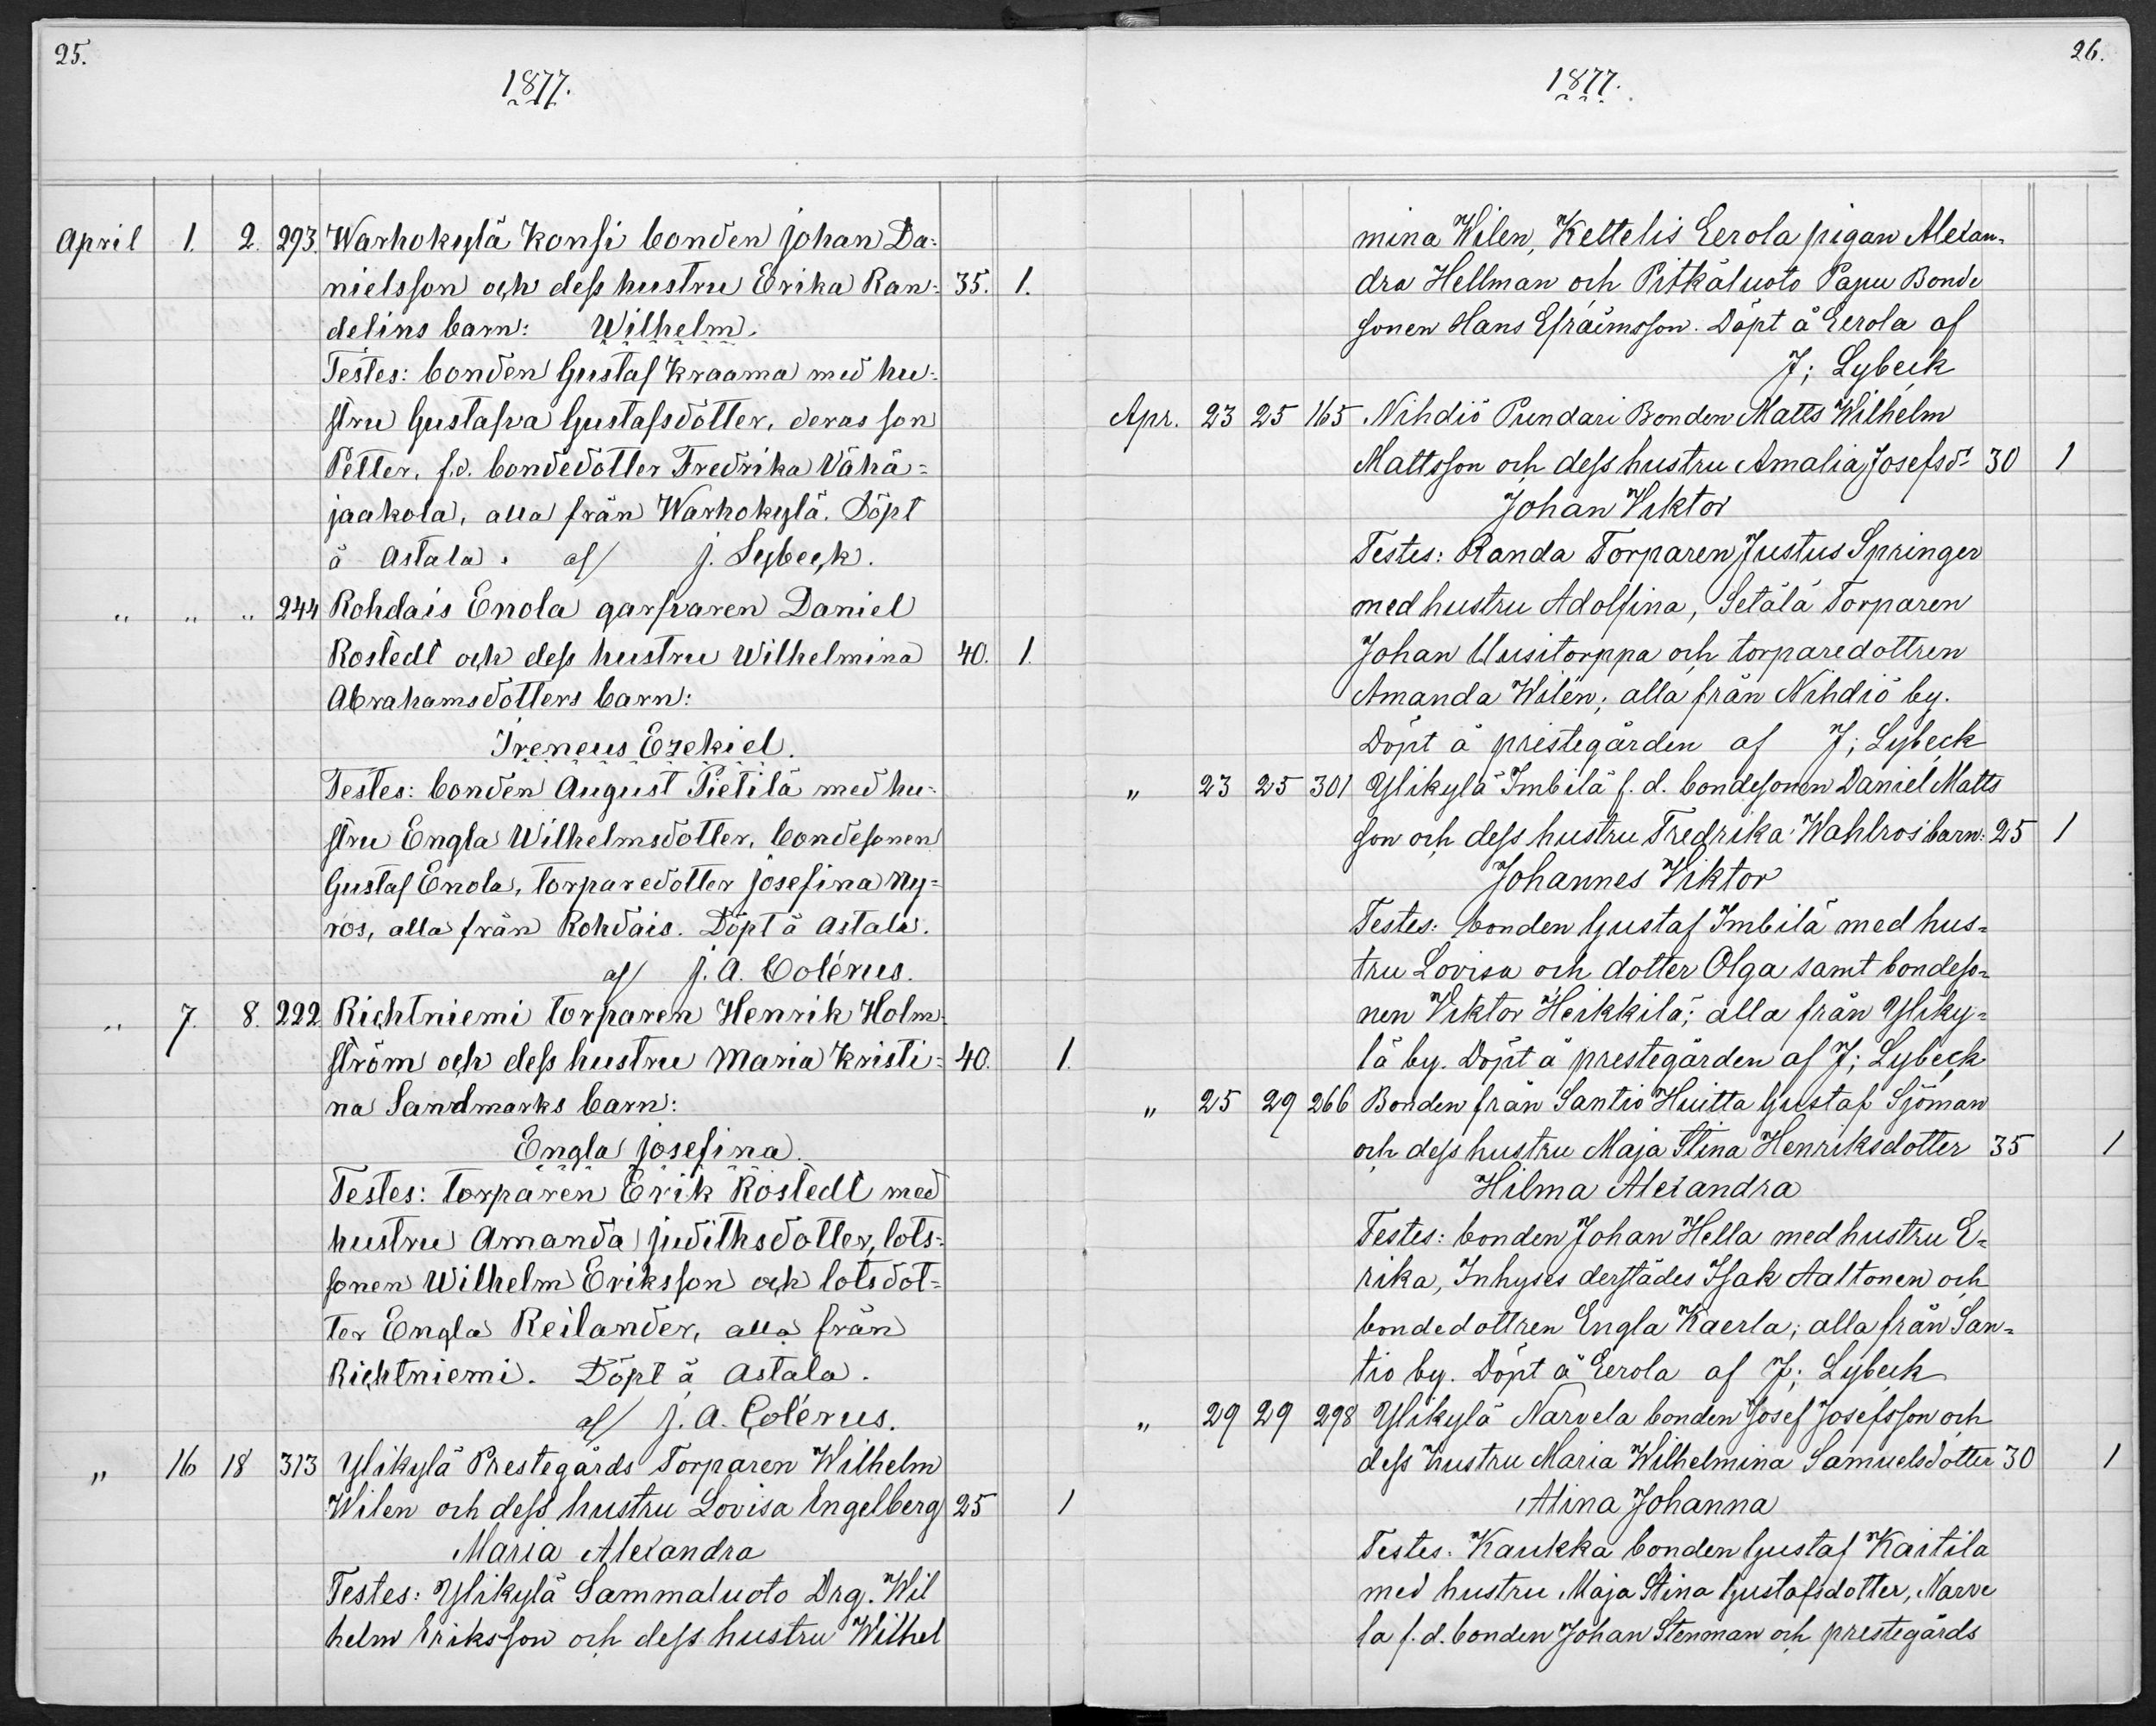 25.
1877.
April 1. 2. 293. Warhokylä Konsi bonden Johan Da-
nielsson och dess hustru Erika Ran- 35. 1.
delins barn: Wilhelm.
Testes: bonden Gustaf Kraama med hu-
stru Gustafva Gustafsdotter, deras son
Petter, f.d. bondedotter Fredrika Vähä-
jaakola, alla från Warhokylä. Döpt
å Astala. af J. Lybeck.
" " " 244 Rohdais Enola garfvaren Daniel
Rostedt och dess hustru Wilhelmina 40. 1.
Abrahamsdotters barn:
Ireneus Ezekiel.
Testes: bonden August Pietilä med hu-
stru Engla Wilhelmsdotter, bondesonen
Gustaf Enola, torparedotter Josefina Ny-
ros, alla från Rohdais. Döpt å Astala.
af J. A. Colérus.
" 7. 8. 222 Richtniemi torparen Henrik Holm-
ström och dess hustru Maria Kristi- 40. 1.
na Sandmarks barn:
Engla Josefina.
Testes: torparen Erik Rostedt med
hustru Amanda Judithsdotter, lots-
sonen Wilhelm Eriksson och lotsdot-
ter Engla Reilander, alla från
Richtniemi. Döpt å Astala.
af J. A. Colérus.
" 16 18 313 Ylikylä Prestegårds Torparen Wilhelm
Wilen och dess hustru Lovisa Engelberg 25 1
Maria Alexandra
Testes: Ylikylä Sammaluoto Drg. Wil
helm Eriksson och dess hustru Wilhel
26.
1877.
mina Wilen, Kettelis Eerola pigan Alexan-
dra Hellman och Pitkäluoto Papu Bonde
sonen Hans Efraimsson. Döpt å Eerola af
J; Lybeck
Apr. 23 25 165 Nihdiö Pundari Bonden Matts Wilhelm
Mattsson och dess hustru Amalia Josefsdr 30 1
Johan Viktor
Testes: Randa Torparen Justus Springer
med hustru Adolfina, Setälä Torparen
Johan Uusitorppa och torparedottren
Amanda Wilén; alla från Nihdiö by.
Döpt å prestegården af J; Lybeck
" 23 25 301 Ylikylä Imbilä f. d. bondesonen Daniel Matts
son och dess hustru Fredrika Wahlros' barn: 25 1
Johannes Viktor
Testes: bonden Gustaf Imbilä med hus-
tru Lovisa och dotter Olga samt bondeso-
nen Viktor Heikkilä; alla från Yliky-
lä by. Döpt å prestegården af J; Lybeck
" 25 29 266 Bonden från Santio Huitta Gustaf Sjöman
och dess hustru Maja Stina Henriksdotter 35 1
Hilma Alexandra
Testes: bonden Johan Hella med hustru E-
rika, Inhyses derstädes Isak Aaltonen och
bondedottren Engla Kaerla; alla från San-
tio by. Döpt å Eerola af J; Lybeck
" 29 29 298 Ylikylä Narvela bonden Josef Josefsson och
dess hustru Maria Wilhelmina Samuelsdotter 30 1
Alina Johanna
Testes. Kaukka bonden Gustaf Kaitila
med hustru Maja Stina Gustafsdotter, Narve
la f. d. bonden Johan Stenman och prestegårds